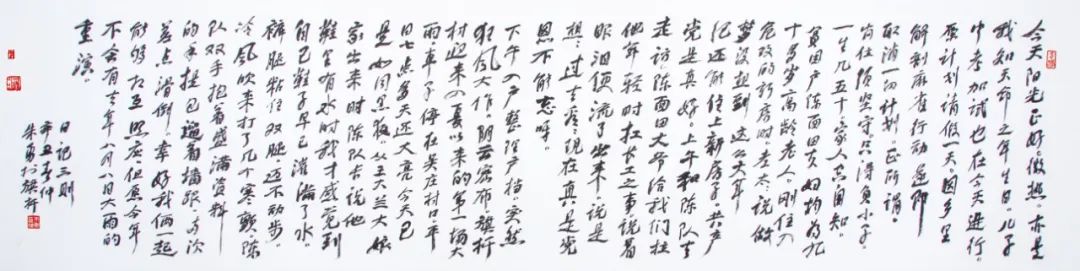 今天阳光正好。微热。亦是
我知天命之年生日。儿子
中考加试也在今天进行。
原计划请假一天。因乡里
解剖麻雀行动遂即
取消一切计划。正所谓。
岗位须坚守。只得负小子。
一生几五十。家人其自知。
贫困户陈面田夫妇均为九
十多岁高龄老人。刚住入
危改的新房时。老太说做
梦没想到这么大年
纪还能住上新房子。共产
党是真好。上午和陈队去
走访陈面田大爷给我们拉
他年轻时扛长工之事说着
眼泪便流了出来。说是
想想过去看现在真是党
恩不能忘呀。
下午入户整理户档。突然
狂风大作。阴云密布旗杆
村迎来入夏以来的第一场大
雨车子停在吴庄村口平
日七点多天还大亮今天已
是如同黑夜。从王大兰大娘
家出来时陈队长说他
鞋里有水时我才感觉到
自己鞋子早已灌满了水
裤腿粘住双腿迈不动步。
冷风吹来打了几个寒颤陈
队双手抱着盛满资料
的手提包多次
差点滑倒。幸好我俩一起
能够相互照应。但愿今年
不会有去年八月八日大雨的
重演。
日记三则
辛丑春仲
朱勇于旗杆